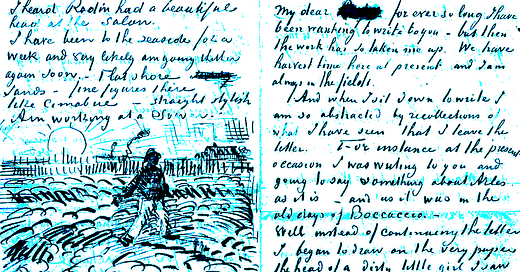 I heard Rodin had a beautiful
head at the salon.
I have been to the seaside for a
week and very likely am going thither
again soon. – Flat shore
sands – fine figures there
like Cimabue – straight stylish
Am working at a Sower
My dear for ever so long I have
been wanting to write to you – but then
the work has so taken me up. We have
harvest time here at present and I am
always in the fields.
And when I sit down to write I
am so abstracted by recollections of
what I have seen that I leave the
letter. For instance at the present
occasion I was writing to you and
going to say something about Arles
as it is – and as it was in the
old days of Boccaccio.
Well instead of continuing the letter
I began to draw on the very paper
the head of a dirty little girl I saw